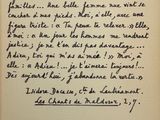 familles... Une belle femme nue vint se
coucher à mes pieds. Moi, à elle, avec une
figure triste : « Tu peux te relever »... Moi,
à elle : « Un jour les hommes me rendront
justice ; je ne t'en dis pas davantage ...
« Adieu, toi qui m'as aimée ! » Moi, à
elle : « Adieu ! ... je t'aimerai toujours ! ...
Dès aujourd'hui, j'abandonne la vertu. »
Isidore Ducasse, Cte de Lautréamont.
Les Chants de Maldoror, 2, 7.